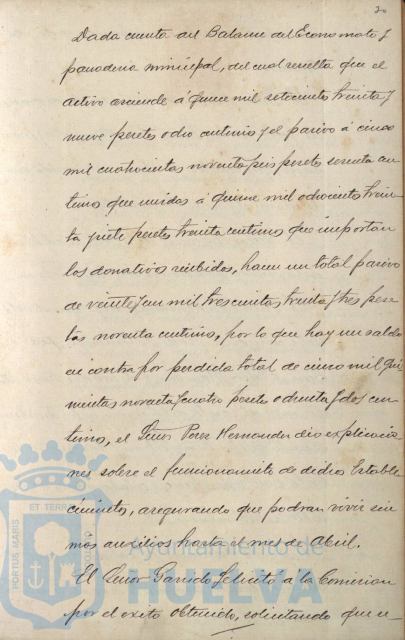 20
Dada cuenta del Balance del Economato y
panaderia municipal, del cual resulta que el
activo asciende á quince mil setecientas treinta y
nueve pesetas ocho centimos y el pasivo á cinco
mil cuatrocientas noventa y seis pesetas sesenta cen
timos que unidas á quince mil ochocientas trein
ta y siete pesetas treinta centimos que importan
los donativos recibidos, hacen un total pasivo
de veinte y un mil trescientas treinta y tres pese
tas noventa centimos, por lo que hay un saldo
en contra por perdida total de cinco mil qui
nientas noventa y cuatro pesetas ochenta y dos cen
timos, el Señor Perez Hernandez dió explicacio
nes sobre el funcionamiento de dichos Estable
cimientos, asegurando que podran vivir sin
mas auxilios hasta el mes de Abril.
El Señor Garrido felicitó a la Comision
por el exito obtenido, solicitando que se
PORTUS MARIS ET TERRAE
Ayuntamiento de
HUELVA